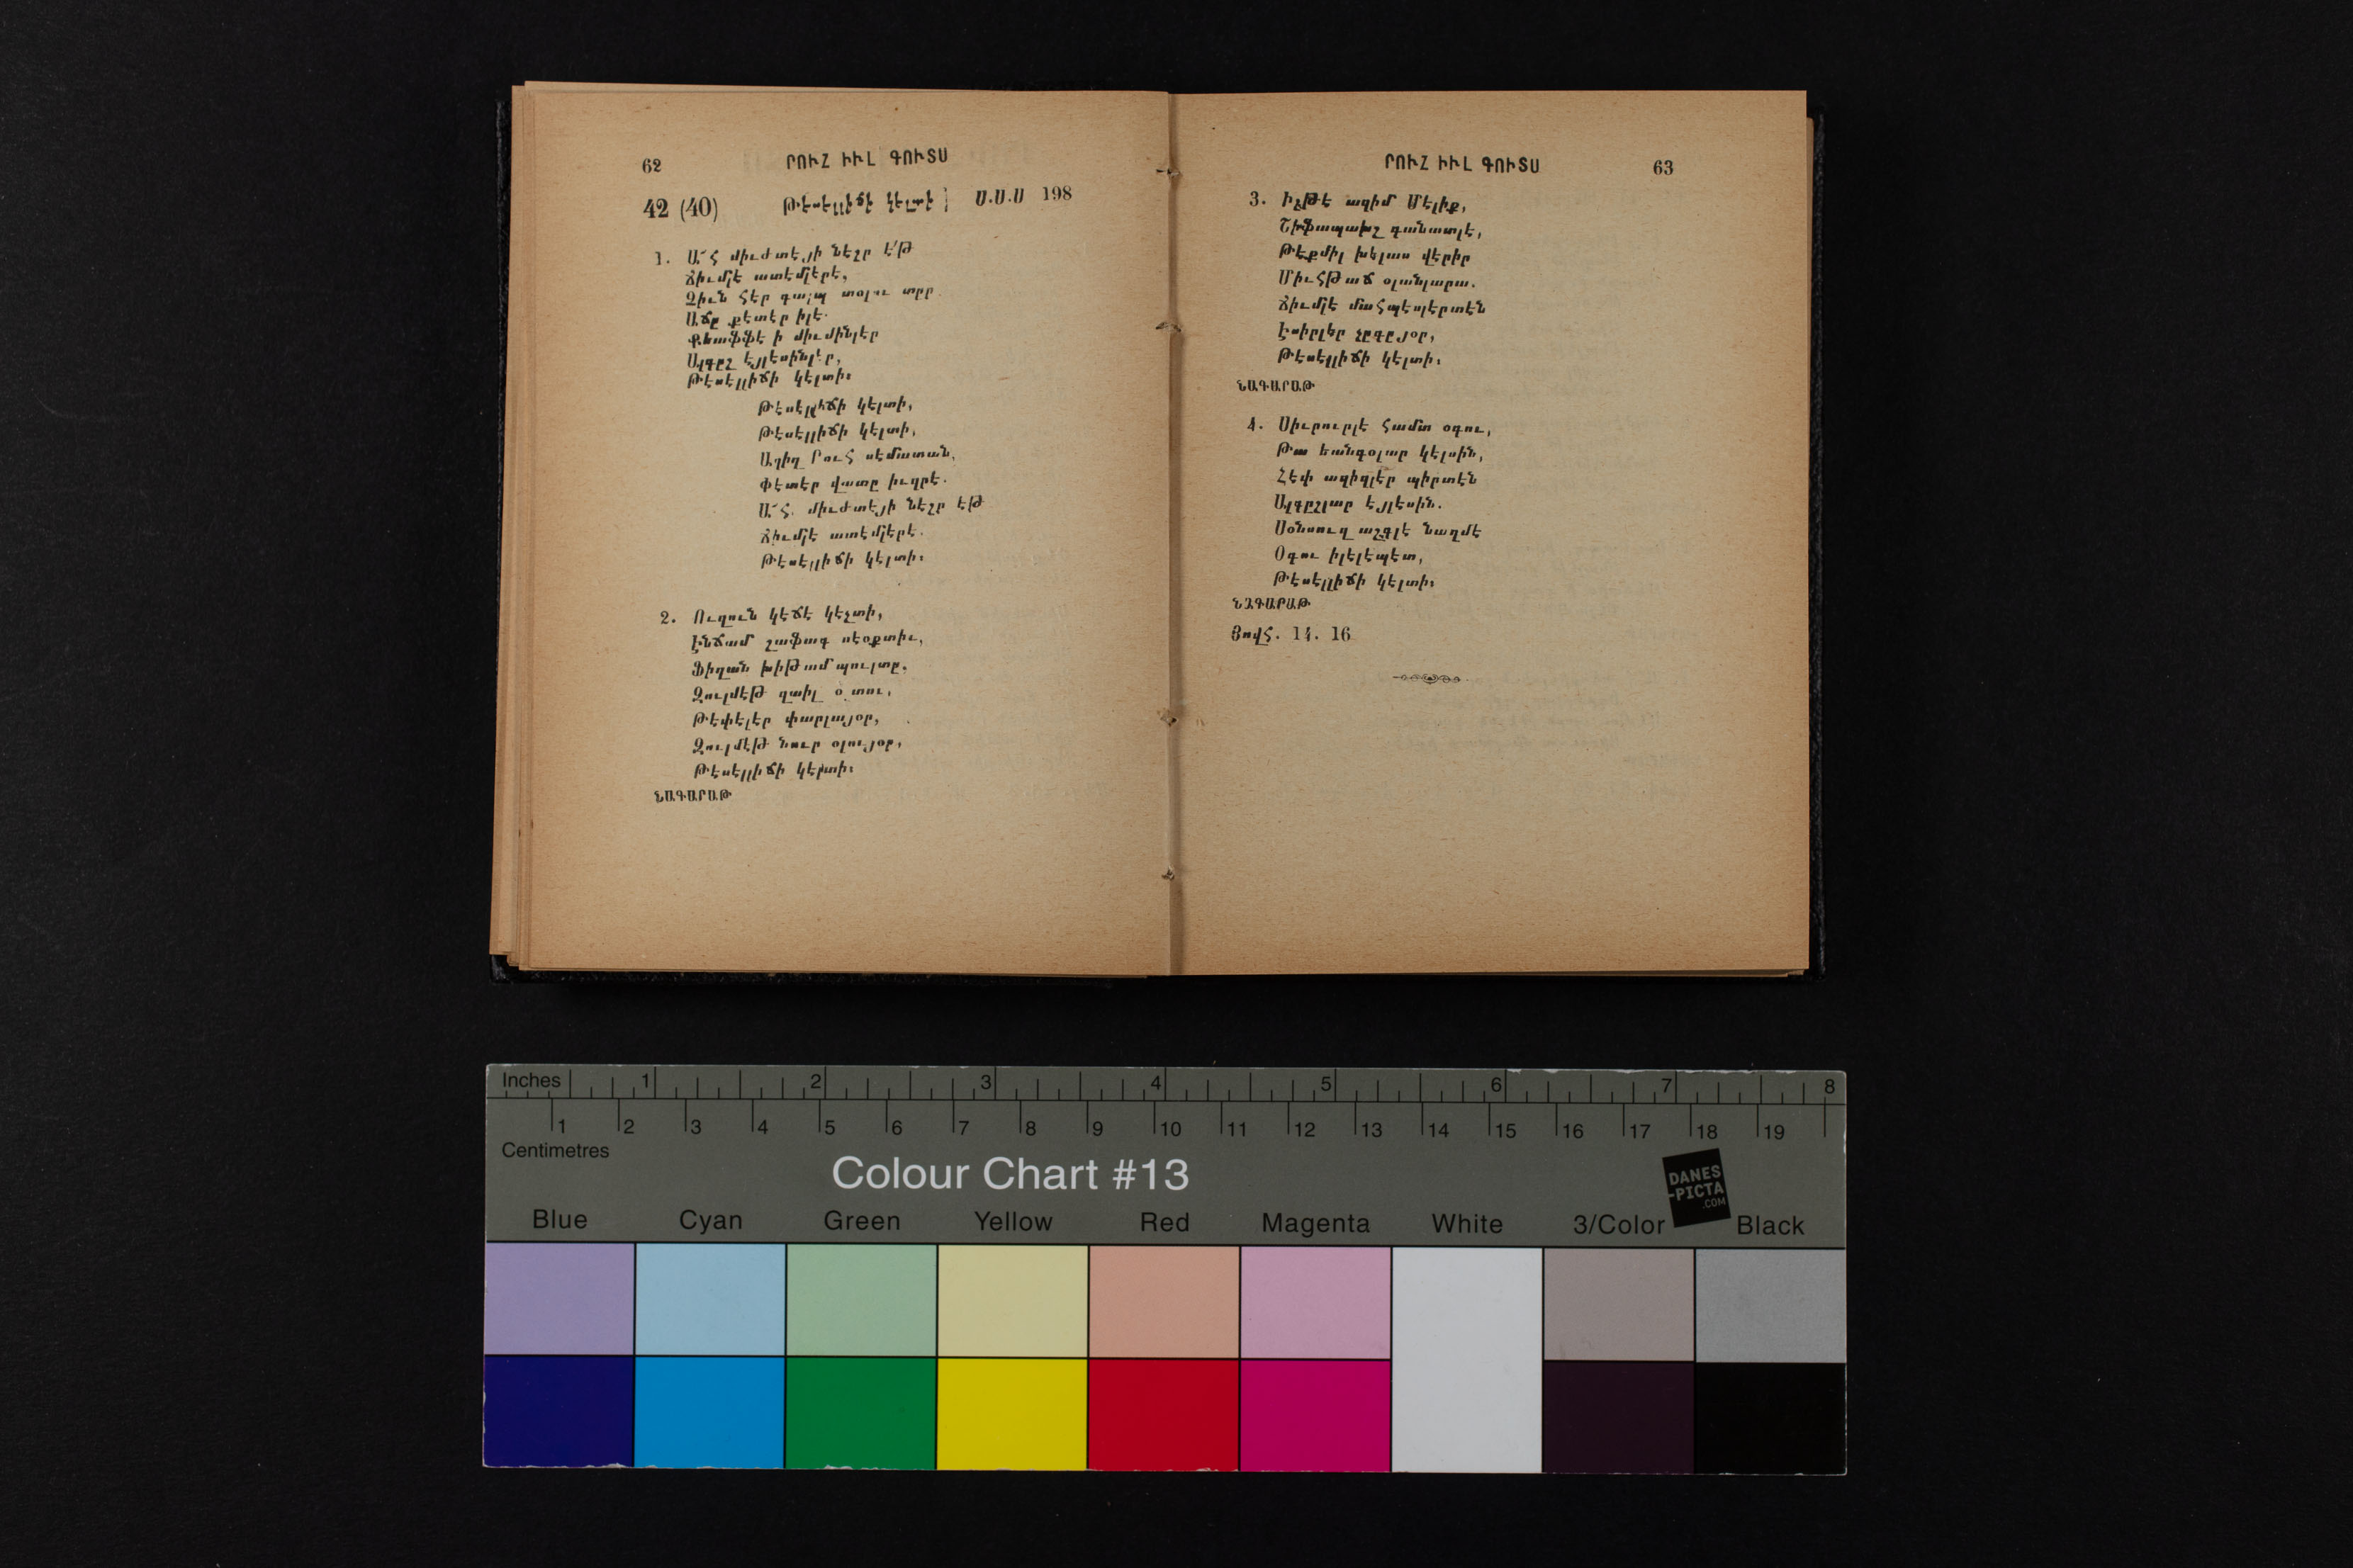 62 ՐՈՒՀ ԻՒԼ ԳՈՒՏՍ
42 (40) Թէսէլլիճի կէլտի Ս.Ս.Ս 198
1. Ա՜Հ միւժտէյի նէշր է՛թ
Ճիւմլէ ատէմլերէ,
Զիւն հէր գալպ տօլու տըր
Աճը քէտէր իլէ.
Քեաֆֆէ ի միւմինլէր
Ալգըշ էյլեսինլէր,
Թէսէլլիճի կէլտի։
Թէսէլլիճի կէլտի,
Թէսէլլիճի կէլտի,
Ազիզ Րուհ սէմատան,
Փէտէր վատը իւզրէ.
Ա՜Հ. միւժտէյի նէշր էթ
Ճիւմլէ ատէմլերէ.
Թէսէլլիճի կէլտի։
2. Ուզուն կէճէ կէչտի,
Էնճամ շաֆագ սէօքտիւ,
Ֆիղան խիթամ պուլտը,
Զուլմէթ զաիլ օլտու,
Թէփելէր փարլայօր,
Զուլմէթ նուր օլույօր,
Թէսէլլիճի կէլտի։
ՆԱԳԱՐԱԹ
ՐՈՒՀ ԻՒԼ ԳՈՒՏՍ 63
3. Իշթէ ազիմ Մէլիք,
Շիֆապախշ գանատլէ,
Թէքմիլ խելաս վէրիր
Միւհթաճ օլանլարա.
Ճիւմլէ մահպէսլէրտէն
Էսիրլեր չըգըյօր,
Թէսէլլիճի կէլտի։
ՆԱԳԱՐԱԹ
4. Սիւրուրլէ համտ օգու,
Թա եանգօլար կէլսին,
Հէփ ազիզլէր պիրտէն
Ալգըշլար էյլեսին.
Սօնսուզ աշգլէ նաղմէ
Օգու իլելէպէտ,
Թէսէլլիճի կէլտի։
ՆԱԳԱՐԱԹ
Յովհ. 14. 16
Inches 1 2 3 4 5 6 7 8
1 2 3 4 5 6 7 8 9 10 11 12 13 14 15 16 17 18 19
Centimetres
Colour Chart #13
DANES
-PICTA
.COM
Blue Cyan Green Yellow Red Magenta White 3/Color Black